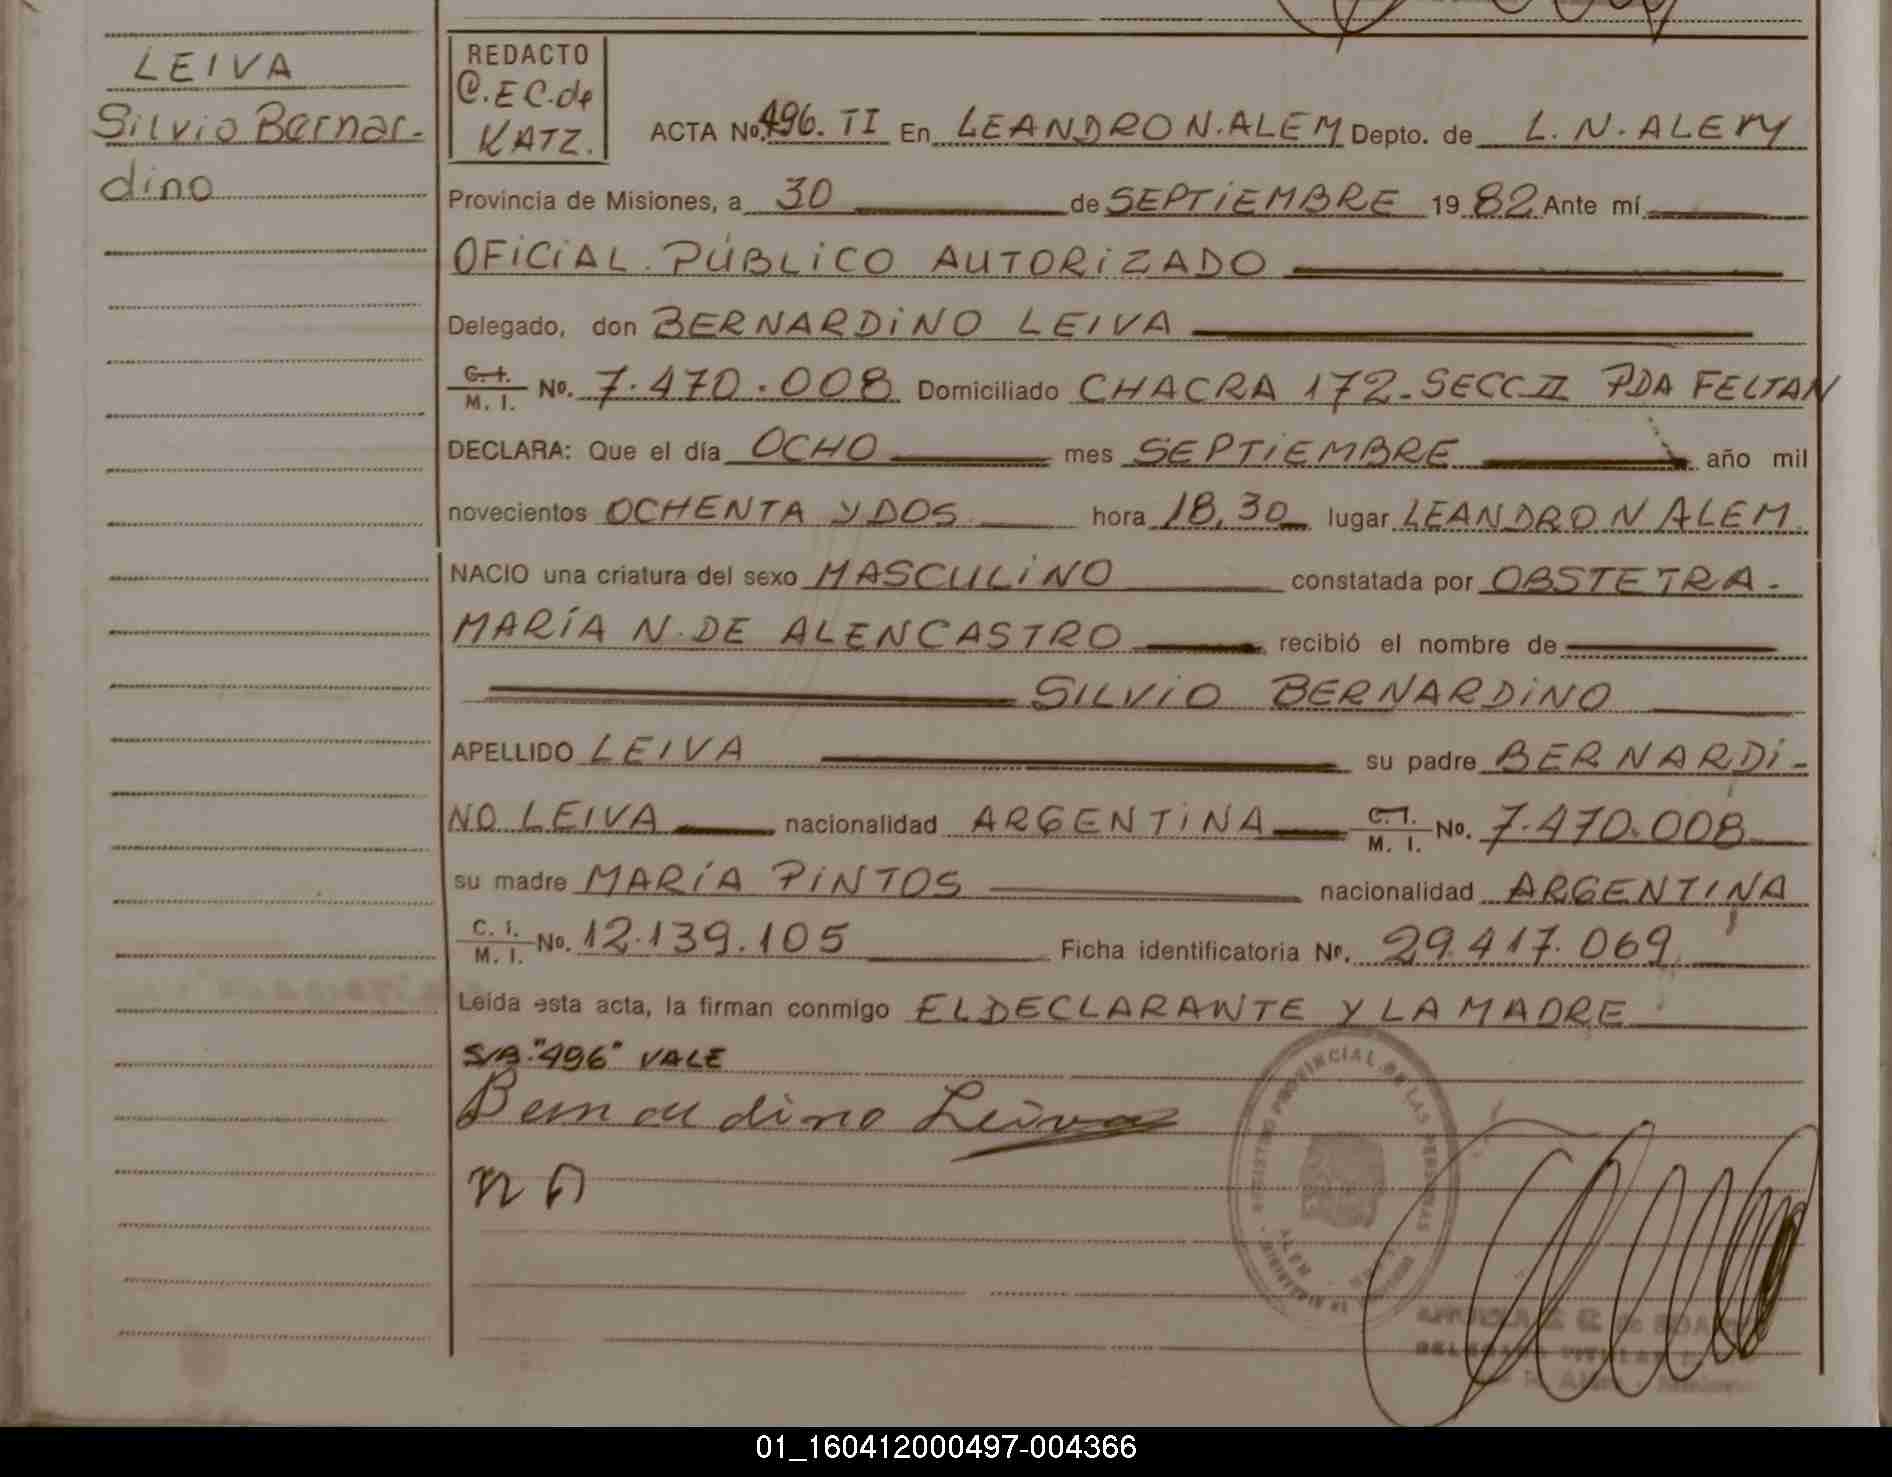 LEIVA
Silvio Bernar-
dino
REDACTO
C. E C. de
KATZ.
ACTA No. 496. TI En LEANDRO N. ALEM Depto. de L. N. ALEM
Provincia de Misiones, a 30 de SEPTIEMBRE 19 82 Ante mí
OFICIAL PÚBLICO AUTORIZADO
Delegado, don BERNARDINO LEIVA
C. I. M. I. No. 7.470.008 Domiciliado CHACRA 172 - SECC II PDA FELTAN
DECLARA: Que el día OCHO mes SEPTIEMBRE año mil
novecientos OCHENTA Y DOS hora 18,30 lugar LEANDRO N ALEM
NACIO una criatura del sexo MASCULINO constatada por OBSTETRA -
MARÍA N. DE ALENCASTRO recibió el nombre de
SILVIO BERNARDINO
APELLIDO LEIVA su padre BERNARDI-
NO LEIVA nacionalidad ARGENTINA C. I. M. I. No. 7.470.008
su madre MARÍA PINTOS nacionalidad ARGENTINA
C. I. M. I. No. 12.139.105 Ficha identificatoria No. 29.417.069
Leída esta acta, la firman conmigo EL DECLARANTE Y LA MADRE
S/B: "496" VALE
Bernardino Leiva
REGISTRO PROVINCIAL DE LAS PERSONAS
01_160412000497-004366